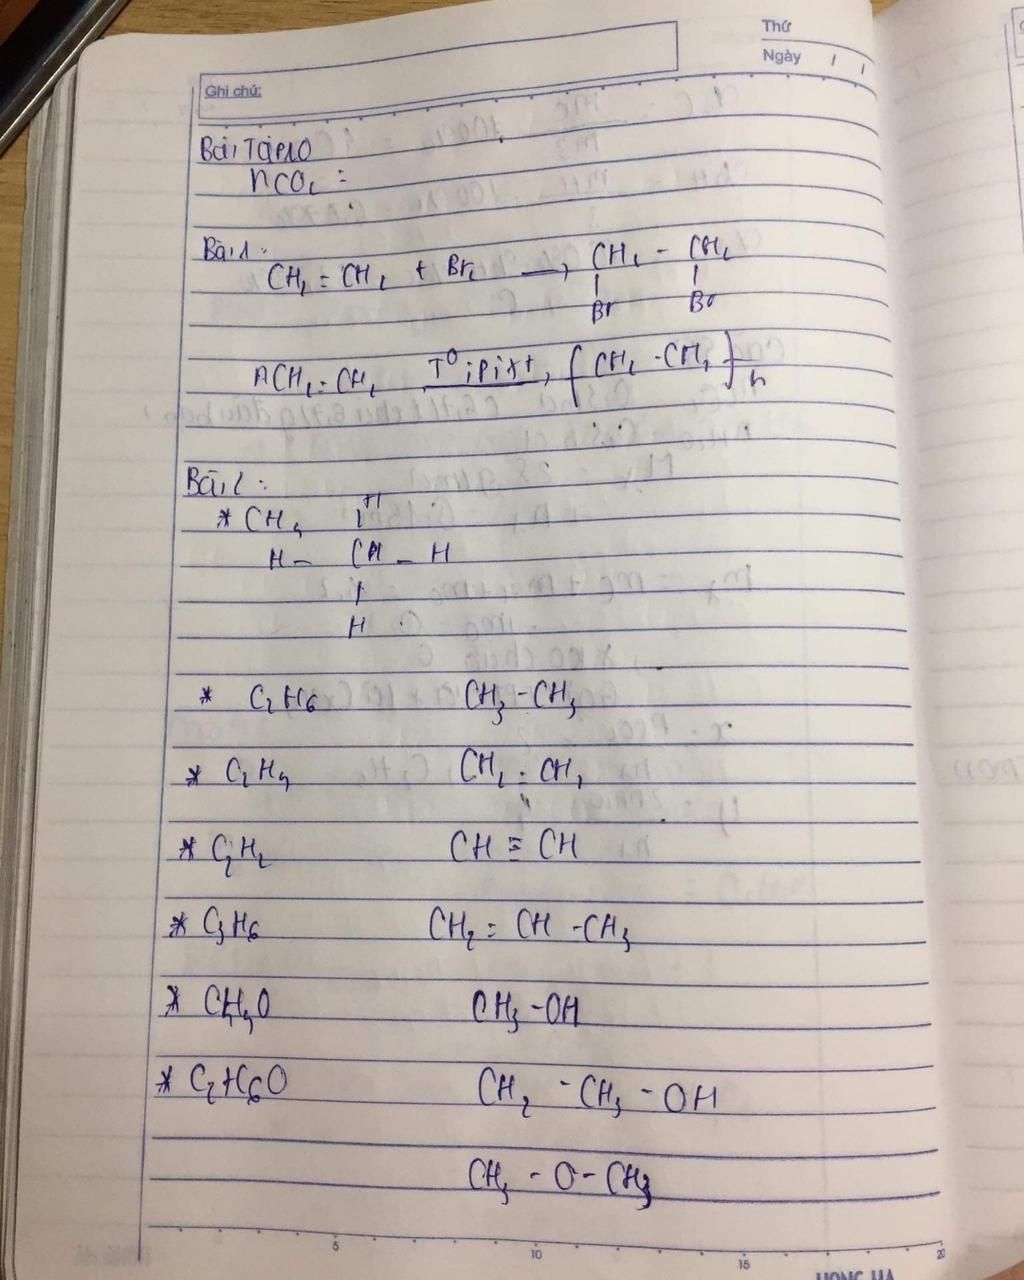 Thứ
Ngày / /
Ghi chú:
Bài Tập10
nCO₂ =
Bài1:
CH₂ = CH₂ + Br₂ → CH₂ - CH₂
| |
Br Br
nCH₂ = CH₂ T⁰, P, xt → (CH₂ - CH₂)n
Bài 2:
* CH₄ H
|
H - CH - H
|
H
* C₂H₆ CH₃ - CH₃
* C₂H₄ CH₂ = CH₂
* C₂H₂ CH ≡ CH
* C₃H₆ CH₂ = CH - CH₃
* CH₄O CH₃ - OH
* C₂H₆O CH₂ - CH₃ - OH
CH₃ - O - CH₃
5 10 15 20
HONG HA